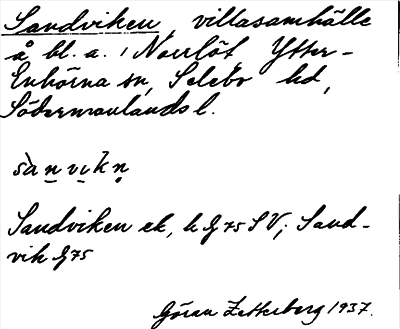 Sandviken, villasamhälle
å bl. a. 1 Norrlöt, Ytter-
Enhörna sn, Selebo hd,
Södermanlands l.
sà n vı k n
Sandviken ek, k G 75 SV; Sand-
vik G 75
Göran Zetterberg 1937.